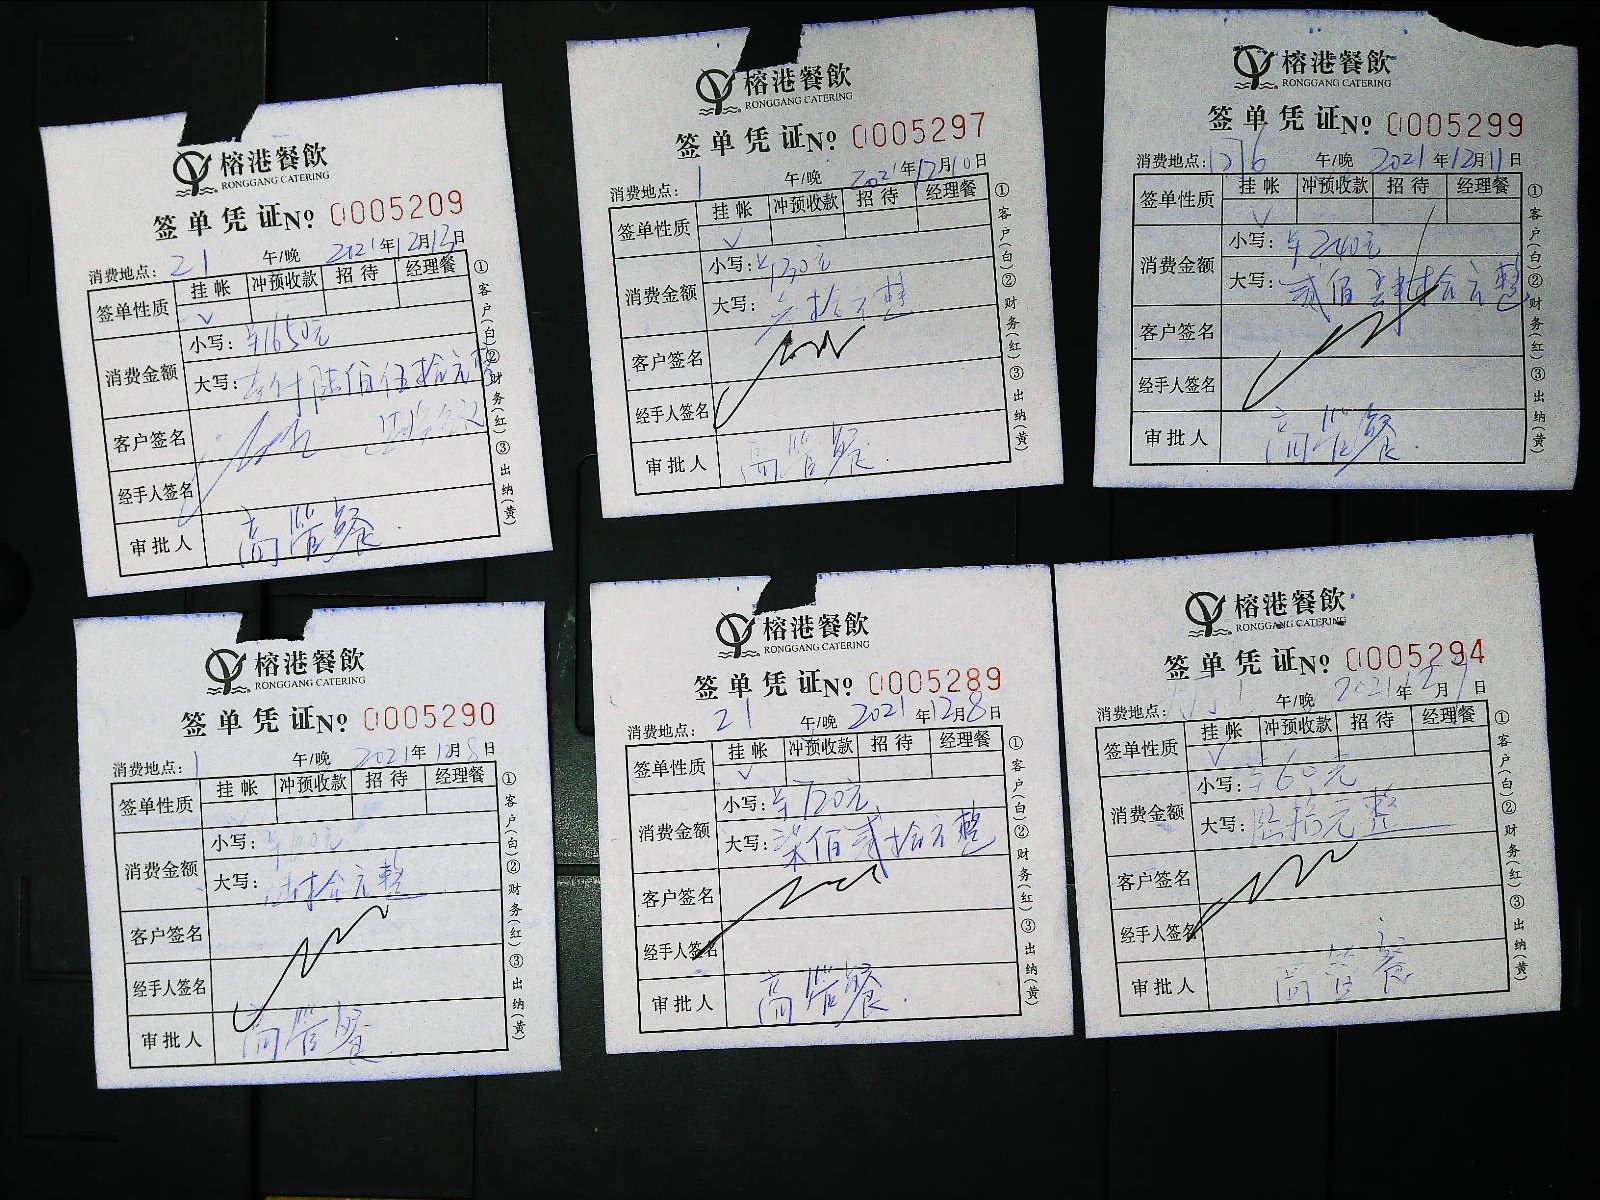 榕港餐飲
RONGGANG CATERING
签单凭证№ 0005209
消费地点: 21 午/晚 2021年12月13日
签单性质 挂帐 冲预收款 招待 经理餐
√
消费金额 小写: ¥1650元
大写: 壹仟陆佰伍拾元整
客户签名
经手人签名
审批人 高管餐
①客户(白)②财务(红)③出纳(黄)
榕港餐飲
RONGGANG CATERING
签单凭证№ 0005297
消费地点: 1 午/晚 2021年12月10日
签单性质 挂帐 冲预收款 招待 经理餐
√
消费金额 小写:
大写: 拾元整
客户签名
经手人签名
审批人 高管餐
①客户(白)②财务(红)③出纳(黄)
榕港餐飲
RONGGANG CATERING
签单凭证№ 0005299
消费地点: 午/晚 2021年12月11日
签单性质 挂帐 冲预收款 招待 经理餐
√
消费金额 小写: ¥240元
大写: 贰佰肆拾元整
客户签名
经手人签名
审批人 高管餐
①客户(白)②财务(红)③出纳(黄)
榕港餐飲
RONGGANG CATERING
签单凭证№ 0005290
消费地点: 1 午/晚 2021年12月8日
签单性质 挂帐 冲预收款 招待 经理餐
√
消费金额 小写:
大写: 拾元整
客户签名
经手人签名
审批人 高管餐
①客户(白)②财务(红)③出纳(黄)
榕港餐飲
RONGGANG CATERING
签单凭证№ 0005289
消费地点: 21 午/晚 2021年12月8日
签单性质 挂帐 冲预收款 招待 经理餐
√
消费金额 小写: ¥720元
大写: 柒佰贰拾元整
客户签名
经手人签名
审批人 高管餐
①客户(白)②财务(红)③出纳(黄)
榕港餐飲
RONGGANG CATERING
签单凭证№ 0005294
消费地点: 午/晚 2021年12月9日
签单性质 挂帐 冲预收款 招待 经理餐
√
消费金额 小写: ¥60元
大写: 陆拾元整
客户签名
经手人签名
审批人 高管餐
①客户(白)②财务(红)③出纳(黄)